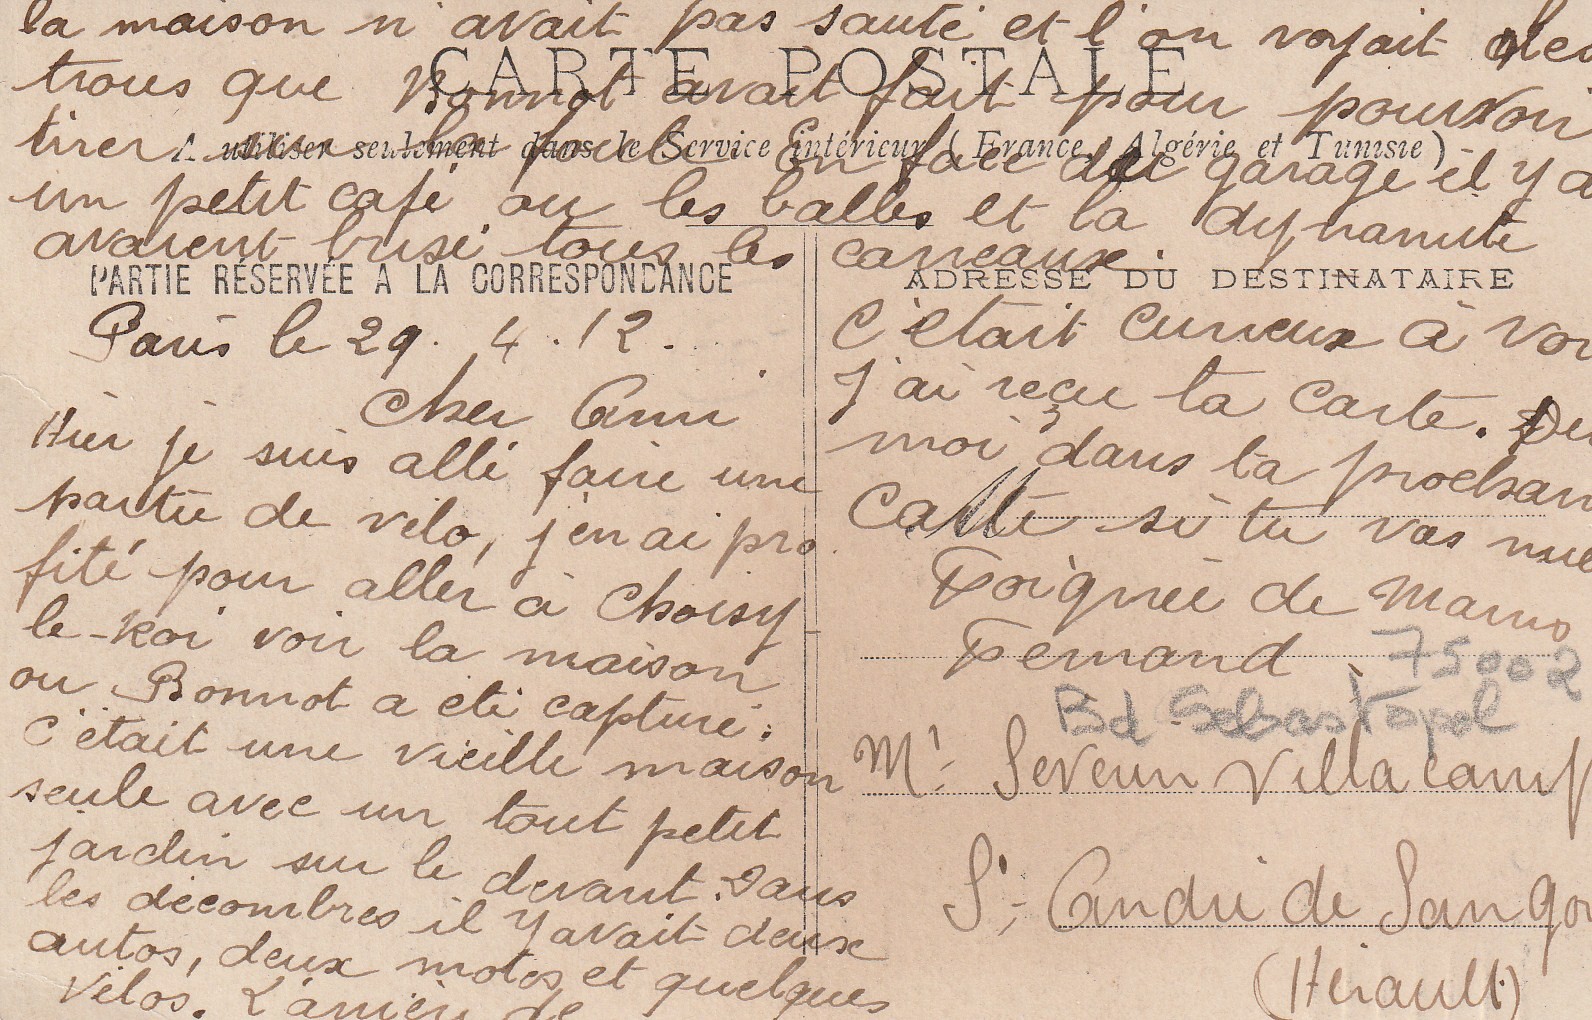 la maison n'avait pas sauté et l'on voyait des
CARTE POSTALE
trous que Bonnot avait fait pour pouvoir
A utiliser seulement dans le Service intérieur (France, Algérie et Tunisie)
tirer sur la foule. En face du garage il y a
un petit café ou les balles et la dynamite
avaient brisé tous les carreaux.
PARTIE RÉSERVÉE A LA CORRESPONDANCE
Paris le 29. 4. 12.
Cher Ami
Hier je suis allé faire une
partie de vélo, j'en ai pro
fité pour aller à Choisy
le-Roi voir la maison
ou Bonnot a été capturé:
c'était une vieille maison
seule avec un tout petit
jardin sur le devant. Dans
les décombres il y avait deux
autos, deux motos et quelques
vélos. L'arrière de
ADRESSE DU DESTINATAIRE
C'était curieux à voi
J'ai reçu ta carte. Dis
moi dans ta prochain
carte si tu vas mie
Poignée de mains
Fernand
75002
Bd Sebastopol
Mr Severin Villacamp
St André de Sangon
(Hérault)